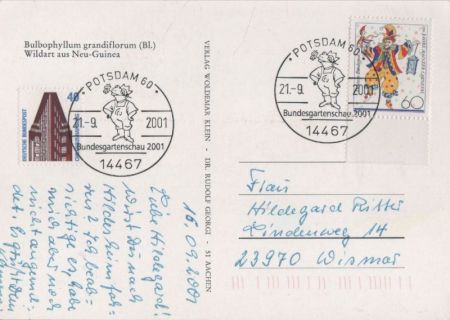 Bulbophyllum grandiflorum (Bl.)
Wildart aus Neu-Guinea
VERLAG WOLDEMAR KLEIN · DR. RUDOLF GEORGI · 51 AACHEN
40
DEUTSCHE BUNDESPOST
POTSDAM 60
21.-9. 2001
Bundesgartenschau 2001
14467
POTSDAM 60
21.-9. 2001
Bundesgartenschau 2001
14467
60
16.09.2001
Liebe Hildegard!
Wirst Du nach
Hildesheim fah-
ren? Ich beab-
sichtige es, habe
mich aber noch
nicht angemel-
det.
Frau
Hildegard Ritter
Lindenweg 14
23970 Wismar